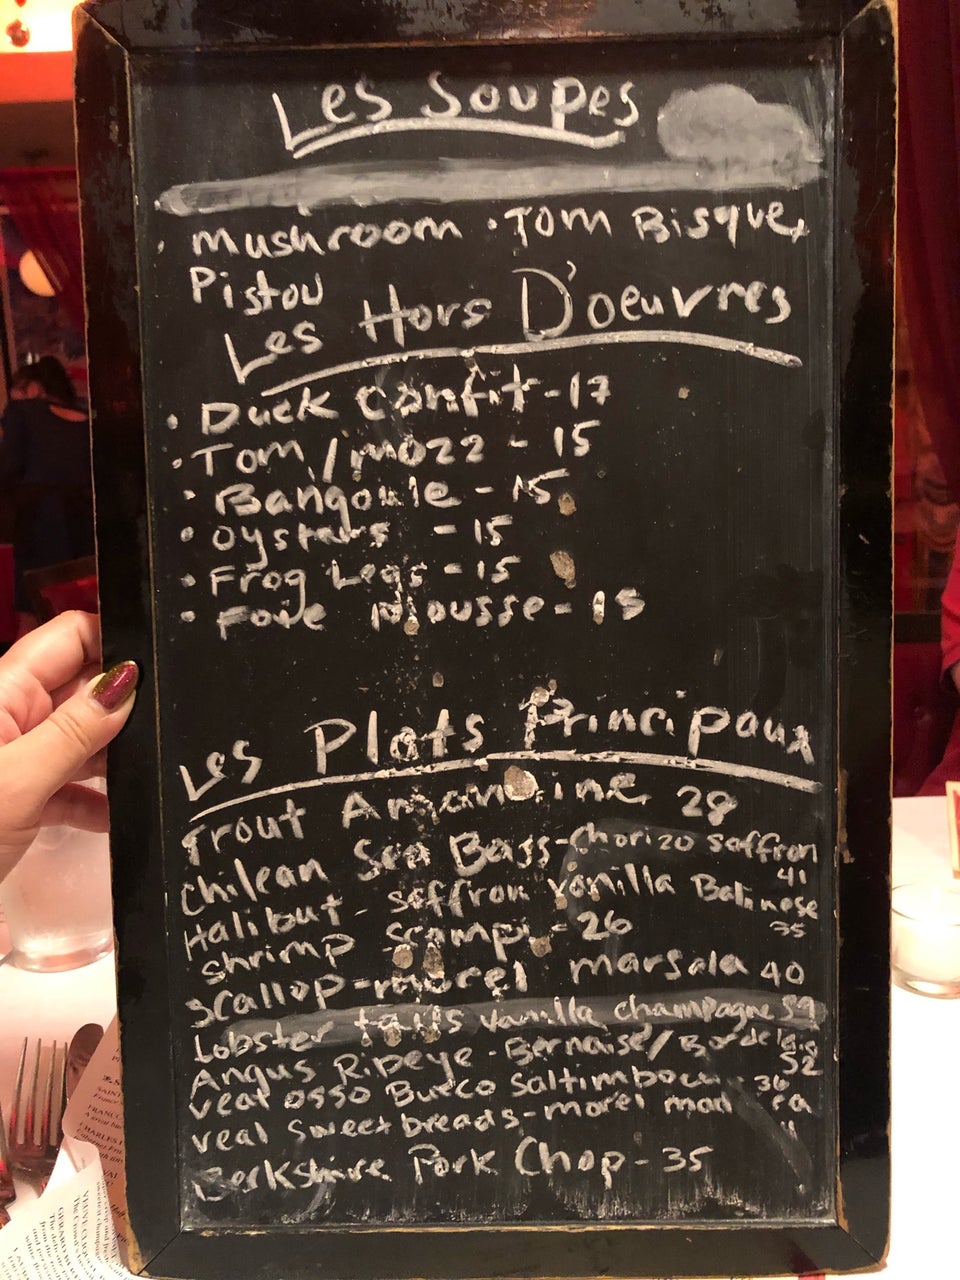 Les Soupes
· Mushroom · Tom Bisque,
Pistou
Les Hors D'oeuvres
· Duck Confit - 17
· Tom./mozz - 15
· Bangoule - 15
· Oysters - 15
· Frog Legs - 15
· Foie Mousse - 15
Les Plats Principaux
Trout Amandine 28
Chilean Sea Bass - Chorizo saffron
41
Halibut - saffron vanilla
35
Shrimp scampi - 26
Scallop - morel marsala 40
Lobster tails vanilla champagne 39
Angus Ribeye - Bernaise/Bordelais
52
Veal Osso Bucco Saltimbocca 36
Veal sweetbreads - morel
Berkshire Pork Chop - 35